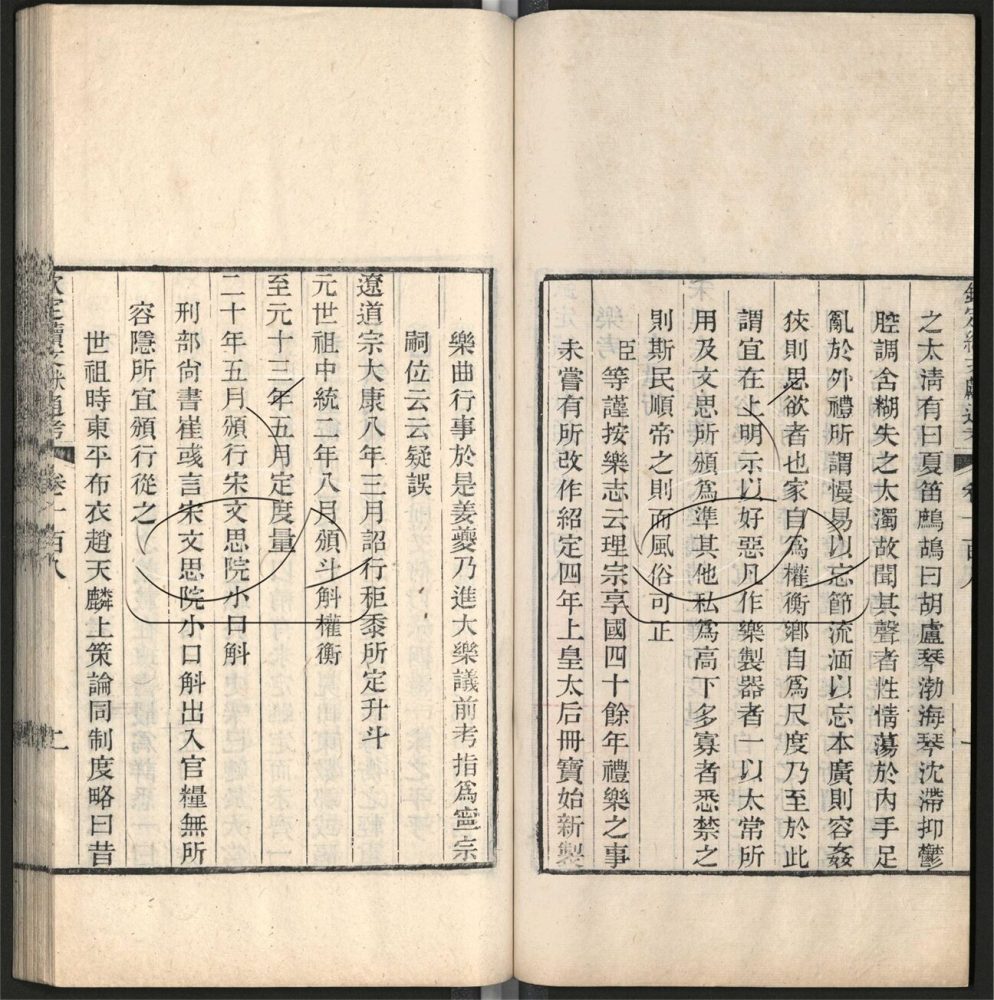 欽定續文獻通考 卷一百八
之太淸有曰夏笛鷓鴣曰胡盧琴渤海琴沈滯抑鬱
腔調含糊失之太濁故聞其聲者性情蕩於內手足
亂於外禮所謂慢易以忘節流湎以忘本廣則容姦
狹則思欲者也家自爲權衡鄉自爲尺度乃至於此
謂宜在上明示以好惡凡作樂製器者一以太常所
用及文思所頒爲準其他私爲高下多寡者悉禁之
則斯民順帝之則而風俗可正
臣等謹按樂志云理宗享國四十餘年禮樂之事
未嘗有所改作紹定四年上皇太后冊寶始新製
樂曲行事於是姜夔乃進大樂議前考指爲寧宗
嗣位云云疑誤
遼道宗大康八年三月詔行秬黍所定升斗
元世祖中統二年八月頒斗斛權衡
至元十三年五月定度量
二十年五月頒行宋文思院小口斛
刑部尙書崔彧言宋文思院小口斛出入官糧無所
容隱所宜頒行從之
世祖時東平布衣趙天麟上策論同制度略曰昔
欽定續文獻通考 卷一百八